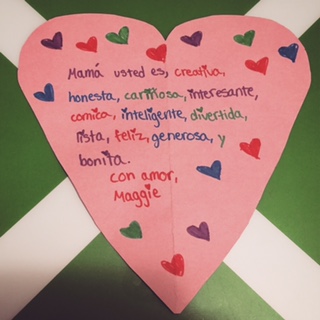 Mamá usted es, creativa,
honesta, cariñosa, interesante,
comica, inteligente, divertida,
lista, feliz, generosa, y
bonita.
con amor,
Maggie